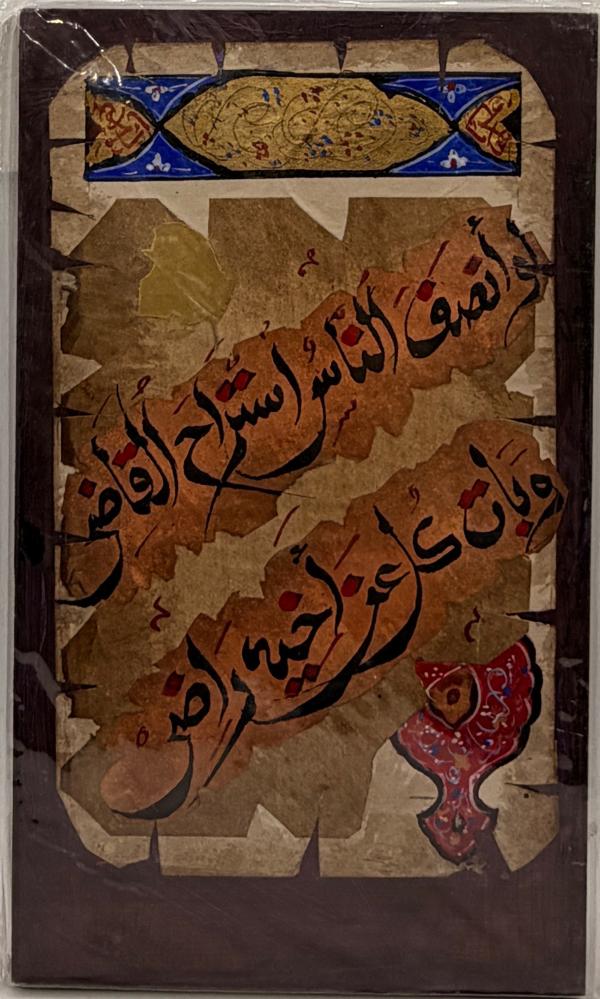 لو أنصفَ الناسُ استراحَ القاضي
وباتَ كلٌّ عن أخيه راضٍ